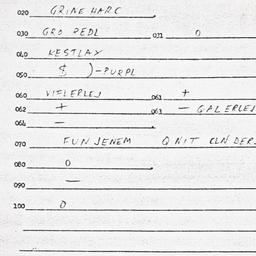 020 GRINE HARC
030 GRO PEDL 031 0
040 KESTLAX
050 $ )-PURPL
060 VIFLERLEJ 061 +
062 + 063 - GALERLEJ
064 -
070 FUN JENEM QNIT CLN DER
080 0
090 -
100 0